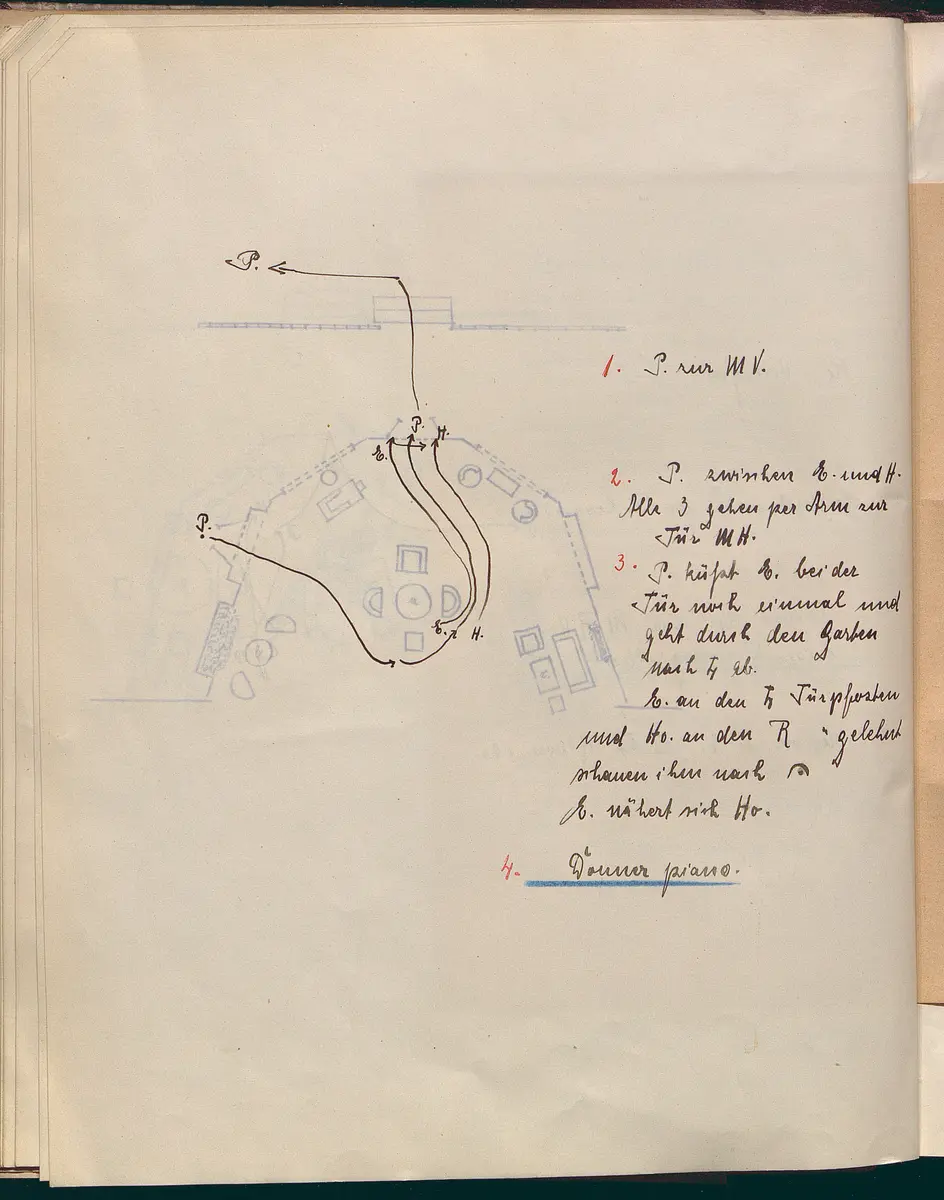 P.
P.
H.
E.
P.
E. H.
1. P. zur M V.
2. P. zwischen E. und H.
Alle 3 gehen per Arm zur
Tür MH.
3. P. küßt E. bei der
Tür noch einmal und
geht durch den Garten
nach ab.
E. an den Türpfosten
und Ho. an den R " gelehnt
schauen ihm nach
E. nähert sich Ho.
4. Donner piano.